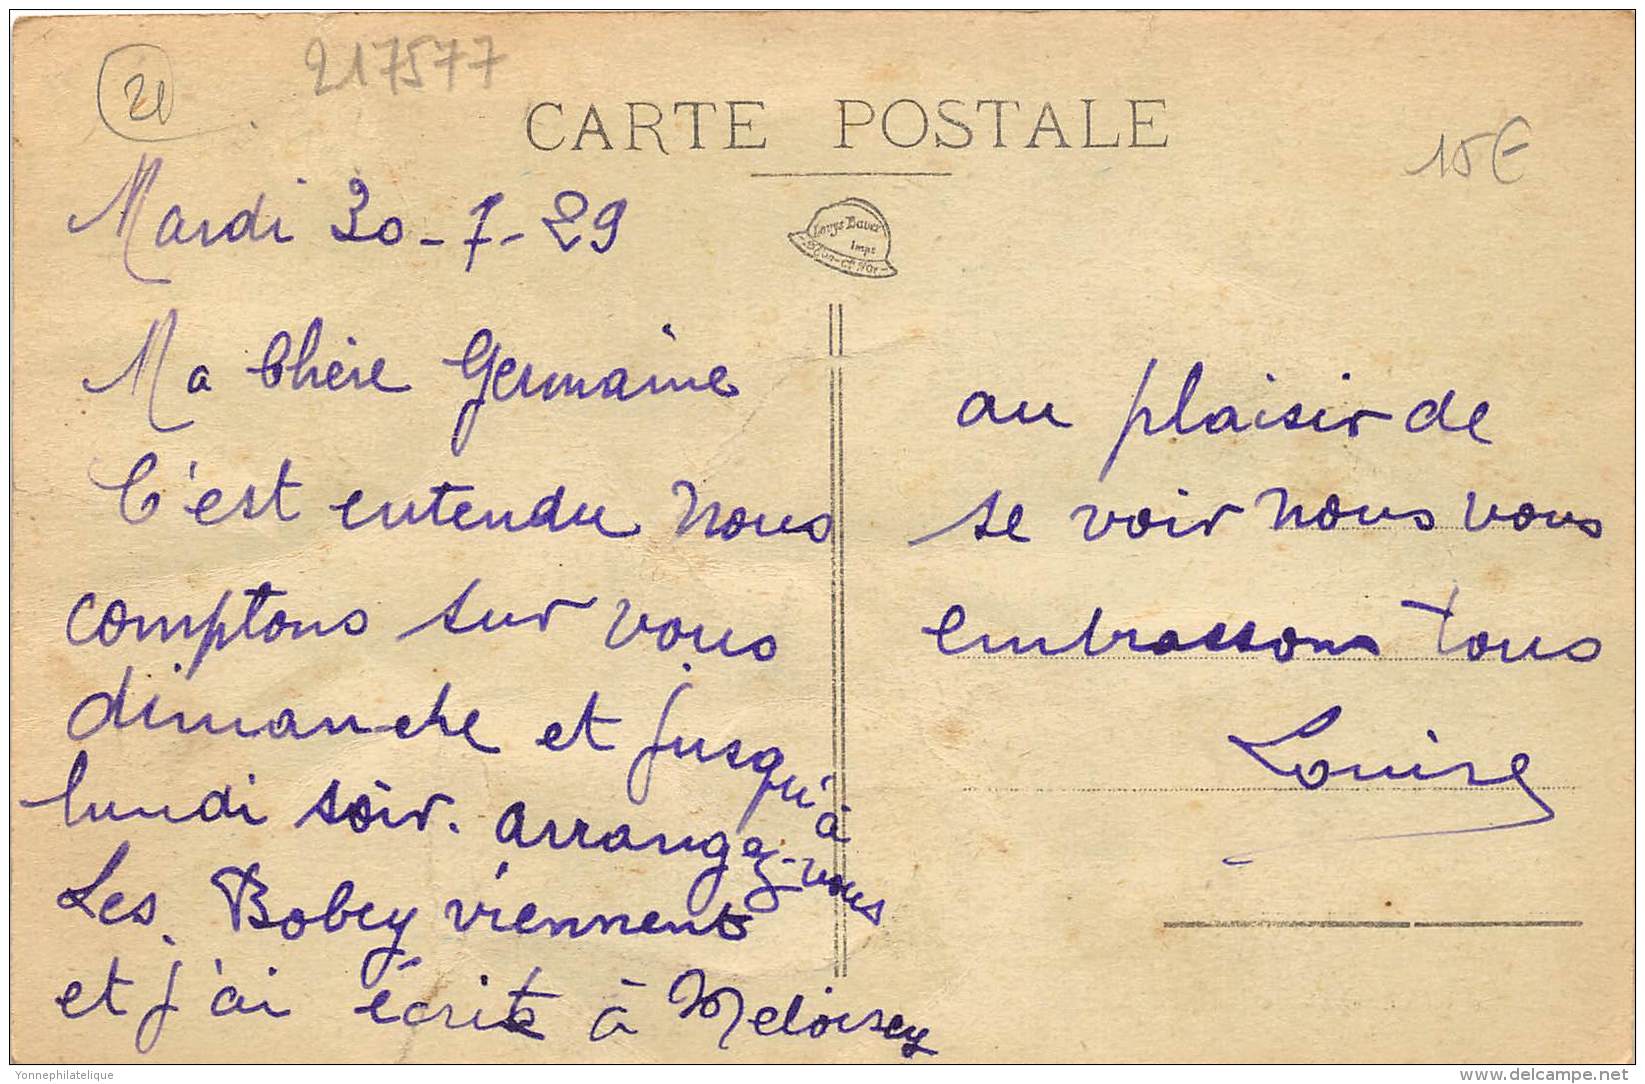 21
217577
CARTE POSTALE
15€
Louys Bauer
Impr
Dijon-Cte d'Or
Mardi 30-7-29
Ma Chère Germaine
C'est entendu nous
comptons sur vous
dimanche et jusqu'à
lundi soir. arrangez-vous
Les Bobey viennent
et j'ai écrit à Meloisey
au plaisir de
se voir nous vous
embrassons tous
Louise
Yonnephilatelique
www.delcampe.net